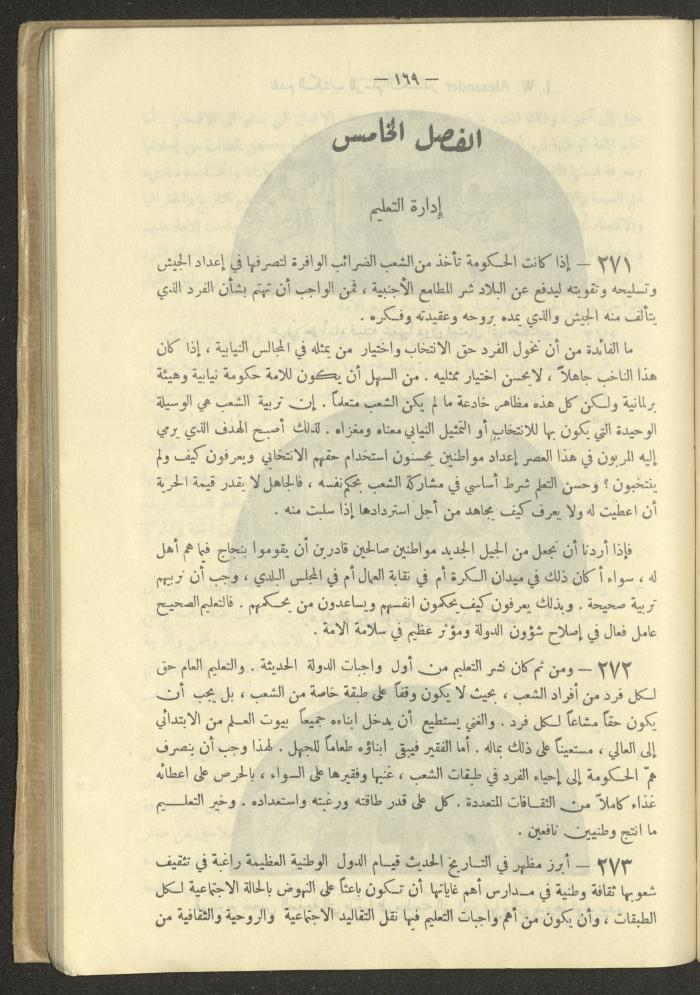 — ١٦٩ —
الفصل الخامس
إدارة التعليم
٢٧١ — إذا كانت الحكومة تأخذ من الشعب الضرائب الوافرة لتصرفها في إعداد الجيش
وتسليحه وتقويته ليدفع عن البلاد شر المطامع الأجنبية ، فمن الواجب أن تهتم بشأن الفرد الذي
يتألف منه الجيش والذي يمده بروحه وعقيدته وفكره .
ما الفائدة من أن نخول الفرد حق الانتخاب واختيار من يمثله في المجالس النيابية ، إذا كان
هذا الناخب جاهلاً ، لايحسن اختيار ممثليه . من السهل أن يكون للامة حكومة نيابية وهيئة
برلمانية ولكن كل هذه مظاهر خادعة ما لم يكن الشعب متعلماً . إن تربية الشعب هي الوسيلة
الوحيدة التي يكون بها للانتخاب أو التمثيل النيابي معناه ومغزاه . لذلك أصبح الهدف الذي يرمي
إليه المربون في هذا العصر إعداد مواطنين يحسنون استخدام حقهم الانتخابي ويعرفون كيف ولم
ينتخبون ؟ وحسن التعلم شرط أساسي في مشاركة الشعب بحكم نفسه ، فالجاهل لا يقدر قيمة الحرية
أن اعطيت له ولا يعرف كيف يجاهد من أجل استردادها إذا سلبت منه .
فإذا أردنا أن نجعل من الجيل الجديد مواطنين صالحين قادرين أن يقوموا بنجاح فيما هم أهل
له ، سواء أكان ذلك في ميدان الكرة أم في نقابة العمال أم في المجلس البلدي ، وجب أن نربيهم
تربية صحيحة . وبذلك يعرفون كيف يحكمون انفسهم ويساعدون من يحكمهم . فالتعليم الصحيح
عامل فعال في إصلاح شؤون الدولة ومؤثر عظيم في سلامة الامة .
٢٧٢ — ومن ثم كان نشر التعليم من أول واجبات الدولة الحديثة . والتعليم العام حق
لكل فرد من أفراد الشعب ، بحيث لا يكون وقفاً على طبقة خاصة من الشعب ، بل يجب أن
يكون حقاً مشاعاً لكل فرد . والغني يستطيع أن يدخل ابناءه جميعاً بيوت العلم من الابتدائي
إلى العالي ، مستعيناً على ذلك بماله . أما الفقير فيبقى ابناؤه طعاماً للجهل . لهذا وجب أن ينصرف
همّ الحكومة إلى إحياء الفرد في طبقات الشعب ، غنيها وفقيرها على السواء ، بالحرص على اعطائه
غذاء كاملاً من الثقافات المتعددة . كل على قدر طاقته ورغبته واستعداده . وخير التعليم
ما انتج وطنيين نافعين .
٢٧٣ — أبرز مظهر في التاريخ الحديث قيام الدول الوطنية العظيمة راغبة في تثقيف
شعوبها ثقافة وطنية في مدارس أهم غاياتها أن تكون باعثاً على النهوض بالحالة الاجتماعية لكل
الطبقات ، وأن يكون من أهم واجبات التعليم فيها نقل التقاليد الاجتماعية والروحية والثقافية من